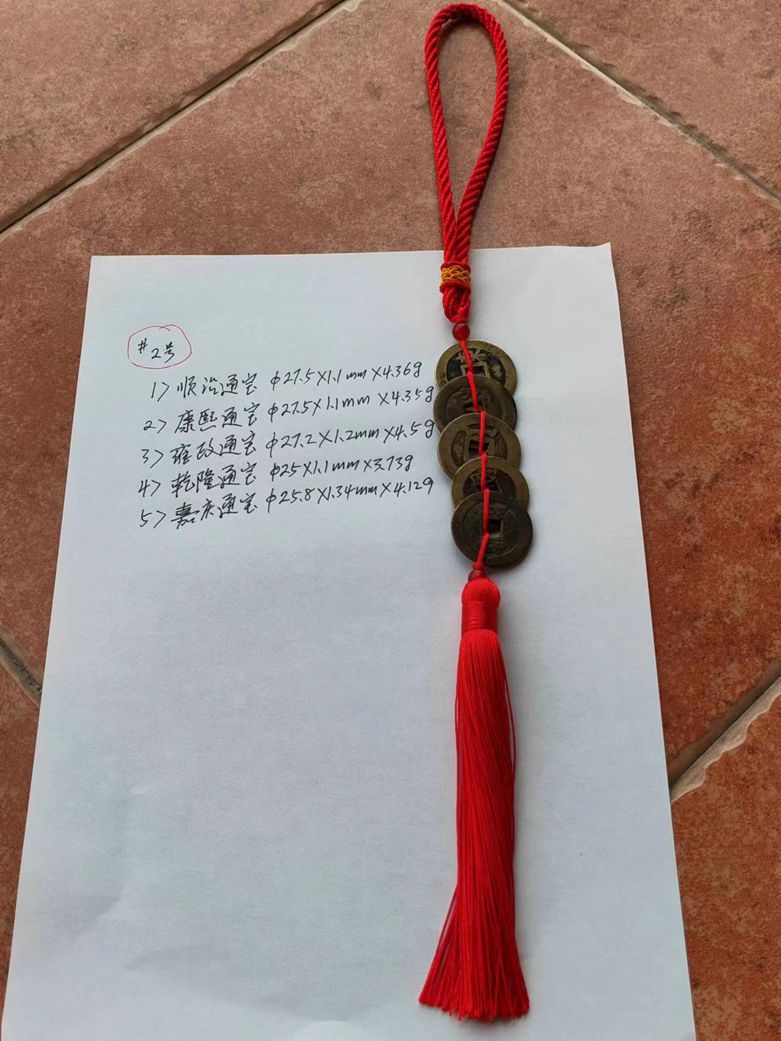 #2号
1> 顺治通宝 φ27.5X1.1mmX4.36g
2> 康熙通宝 φ27.5X1.1mmX4.35g
3> 雍政通宝 φ27.2X1.2mmX4.5g
4> 乾隆通宝 φ25X1.1mmX3.73g
5> 嘉庆通宝 φ25.8X1.34mmX4.12g